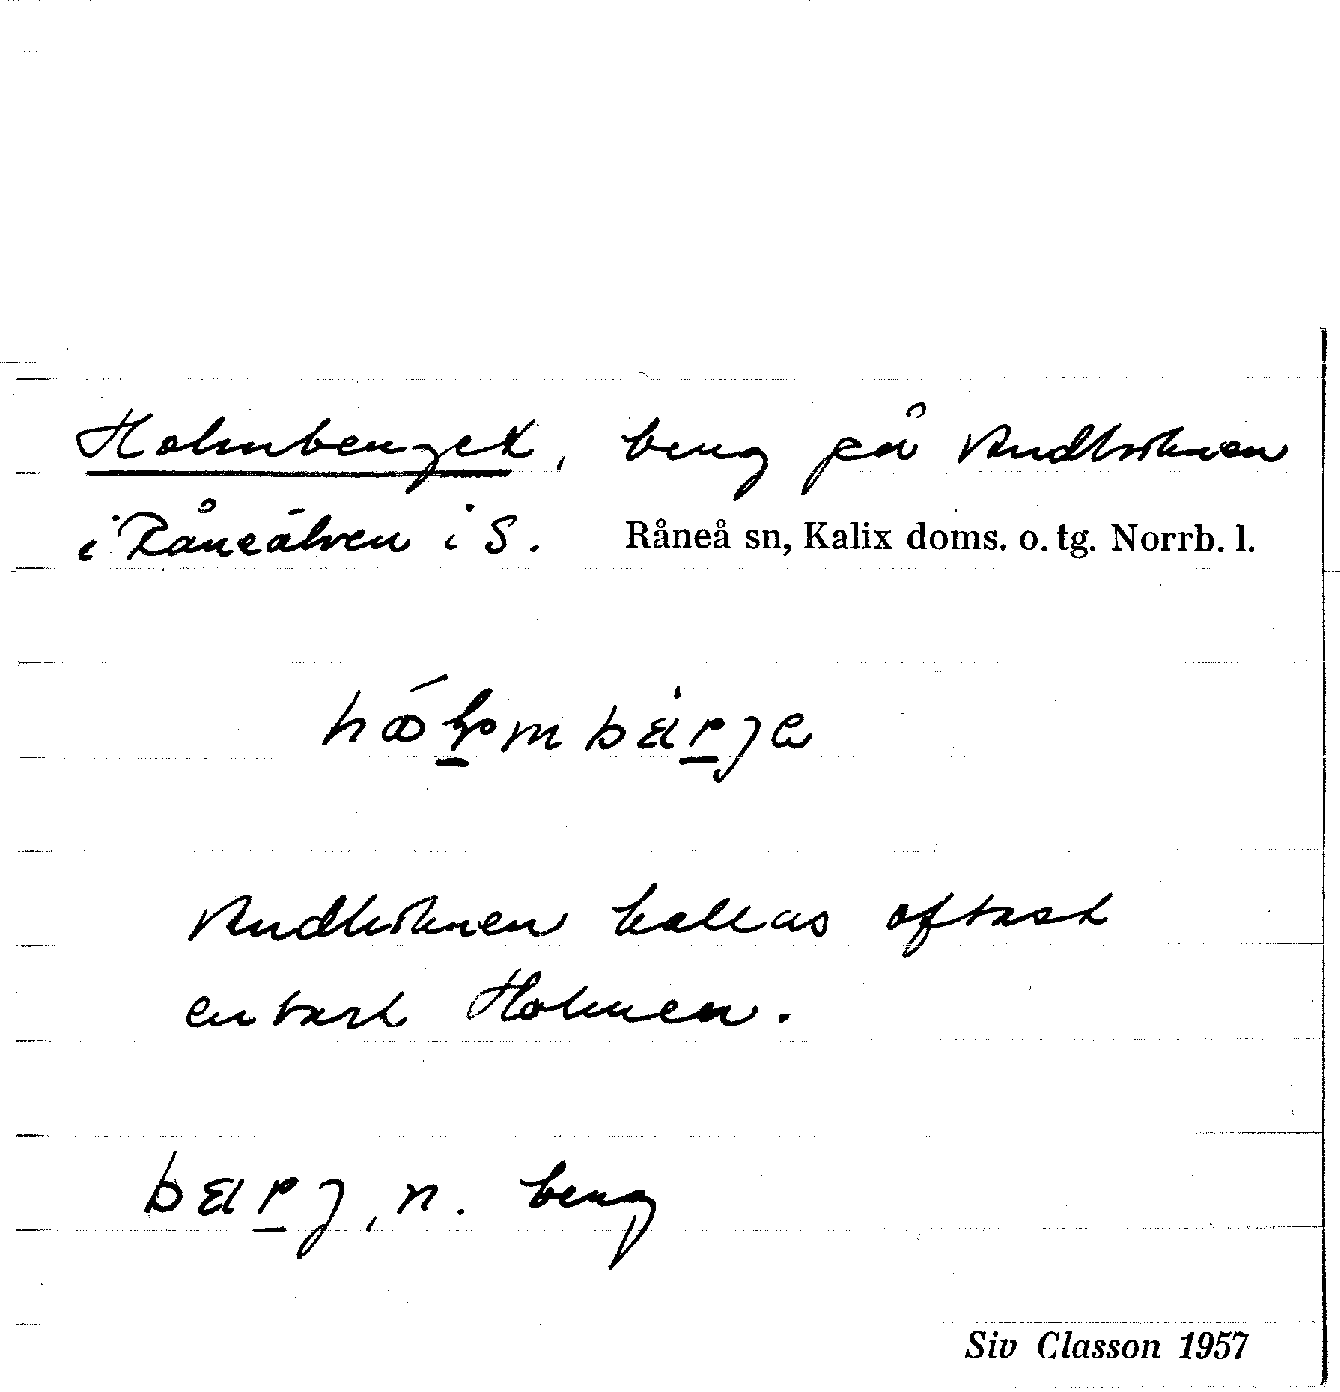 Holmberget, berg på Rudholmen
i Råneälven i S. Råneå sn, Kalix doms. o. tg. Norrb. l.
Rudholmen kallas oftast
enbart Holmen.
n. berg
Siv Classon 1957